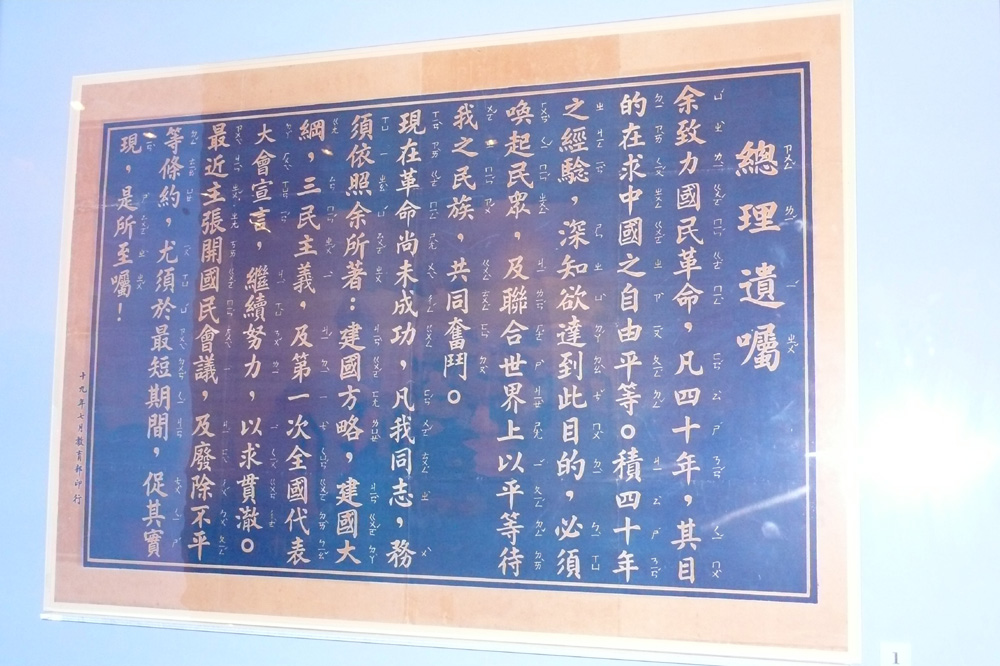 總理遺囑
余致力國民革命，凡四十年，其目
的在求中國之自由平等。積四十年
之經驗，深知欲達到此目的，必須
喚起民眾，及聯合世界上以平等待
我之民族，共同奮鬥。
現在革命尚未成功，凡我同志，務
須依照余所著：建國方略，建國大
綱，三民主義，及第一次全國代表
大會宣言，繼續努力，以求貫澈。
最近主張開國民會議，及廢除不平
等條約，尤須於最短期間，促其實
現，是所至囑！
十九年七月教育部印行
1